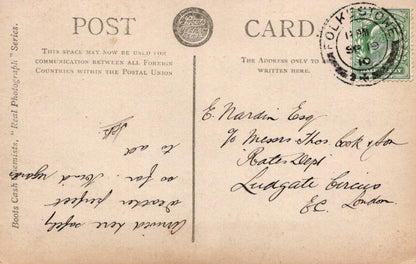 POST
CARD.
THIS SPACE MAY NOW BE USED FOR
COMMUNICATION BETWEEN ALL FOREIGN
COUNTRIES WITHIN THE POSTAL UNION
THE ADDRESS ONLY TO
WRITTEN HERE.
FOLKESTONE
SP 10
10
Boots Cash Chemists, "Real Photograph" Series.
Arrived here safely
weather perfect
so far. Kind regards
to all
E. Nardin Esq
c/o Messrs Thos Cook & Son
Rates Dept
Ludgate Circus
E.C. London